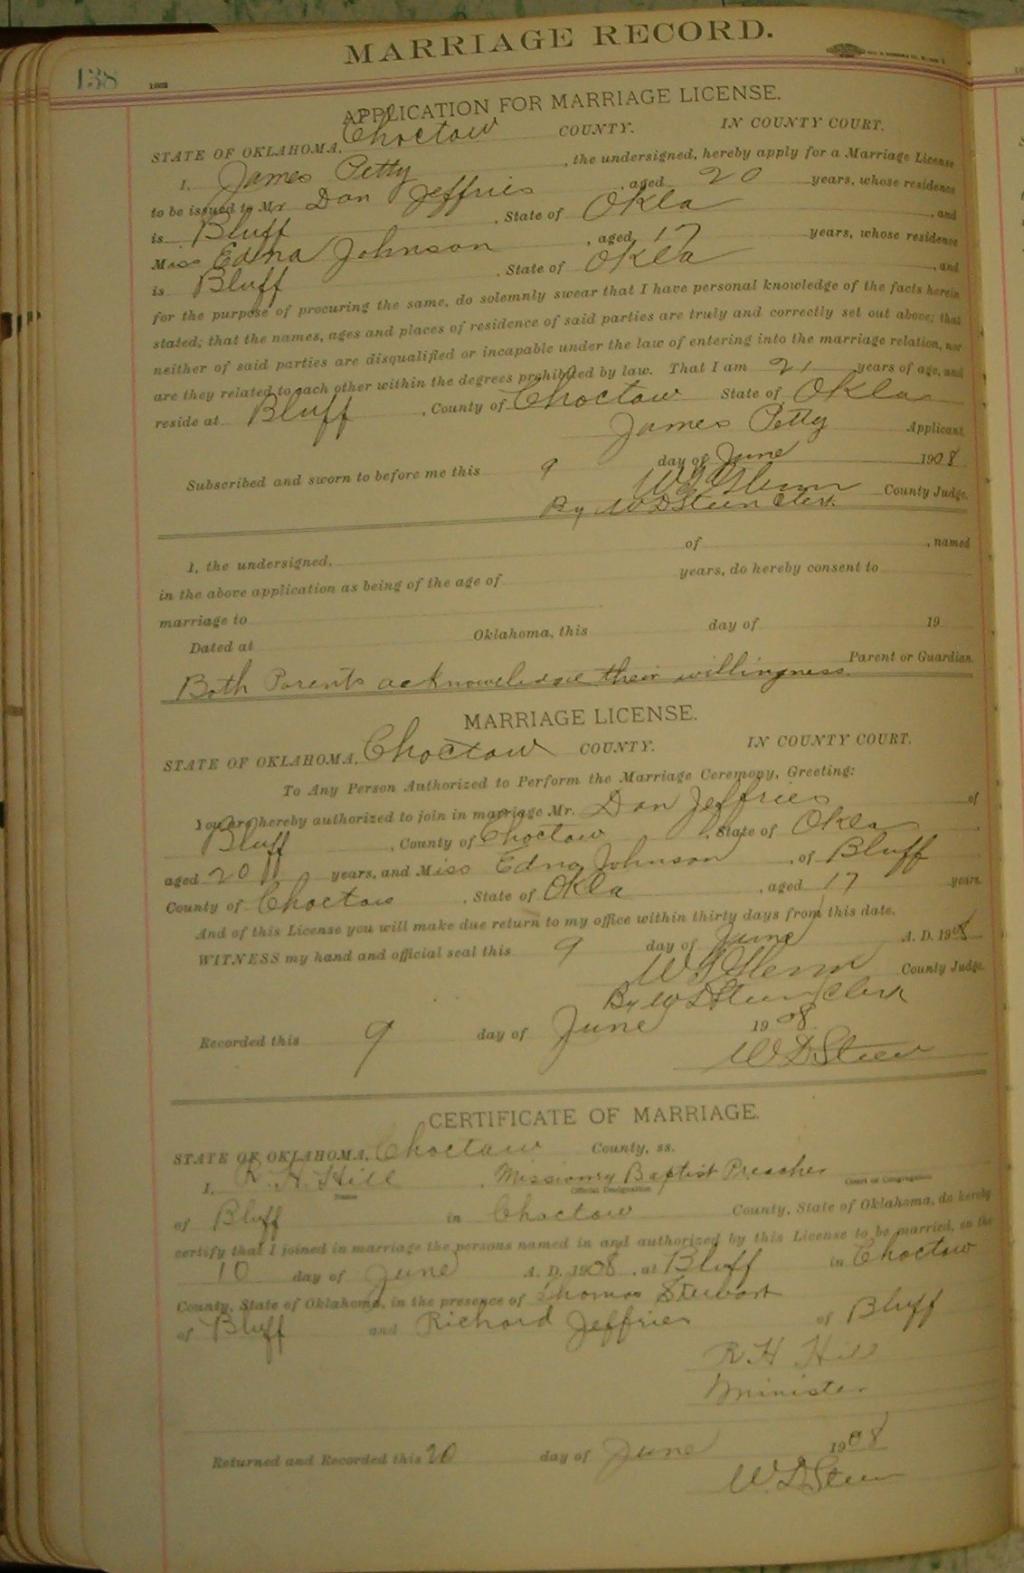 MARRIAGE RECORD.
138
APPLICATION FOR MARRIAGE LICENSE.
STATE OF OKLAHOMA, Choctaw COUNTY. IN COUNTY COURT.
I, James Petty, the undersigned, hereby apply for a Marriage License
to be issued to Mr Dan Jeffries, aged 20 years, whose residence
is Bluff, State of Okla, and
Miss Edna Johnson, aged 17 years, whose residence
is Bluff, State of Okla, and
for the purpose of procuring the same, do solemnly swear that I have personal knowledge of the facts herein
stated; that the names, ages and places of residence of said parties are truly and correctly set out above; that
neither of said parties are disqualified or incapable under the law of entering into the marriage relation, nor
are they related to each other within the degrees prohibited by law. That I am 21 years of age, and
reside at Bluff, County of Choctaw State of Okla
James Petty Applicant.
Subscribed and sworn to before me this 9 day of June 1908
W T Glenn County Judge.
By W D Steen Clerk
I, the undersigned, of , named
in the above application as being of the age of years, do hereby consent to
marriage to
Dated at Oklahoma, this day of 19
Parent or Guardian.
Both Parents acknowledge their willingness.
MARRIAGE LICENSE.
STATE OF OKLAHOMA, Choctaw COUNTY. IN COUNTY COURT.
To Any Person Authorized to Perform the Marriage Ceremony, Greeting:
You are hereby authorized to join in marriage Mr. Dan Jeffries of
Bluff, County of Choctaw, State of Okla
aged 20 years, and Miss Edna Johnson, of Bluff
County of Choctaw, State of Okla, aged 17 years.
And of this License you will make due return to my office within thirty days from this date.
WITNESS my hand and official seal this 9 day of June A. D. 1908
W T Glenn County Judge.
By W D Steen Clerk
Recorded this 9 day of June 1908
W D Steen
CERTIFICATE OF MARRIAGE.
STATE OF OKLAHOMA, Choctaw County, ss.
I, R. H. Hill, Missionry Baptist Preacher
Name Official Designation Court or Congregation
of Bluff in Choctaw County, State of Oklahoma, do hereby
certify that I joined in marriage the persons named in and authorized by this License to be married, on the
10 day of June A. D. 1908, at Bluff in Choctaw
County, State of Oklahoma, in the presence of Thomas Stewart
of Bluff and Richard Jeffries of Bluff
R H Hill
Minister
Returned and Recorded this 20 day of June 1908
W. D Steen